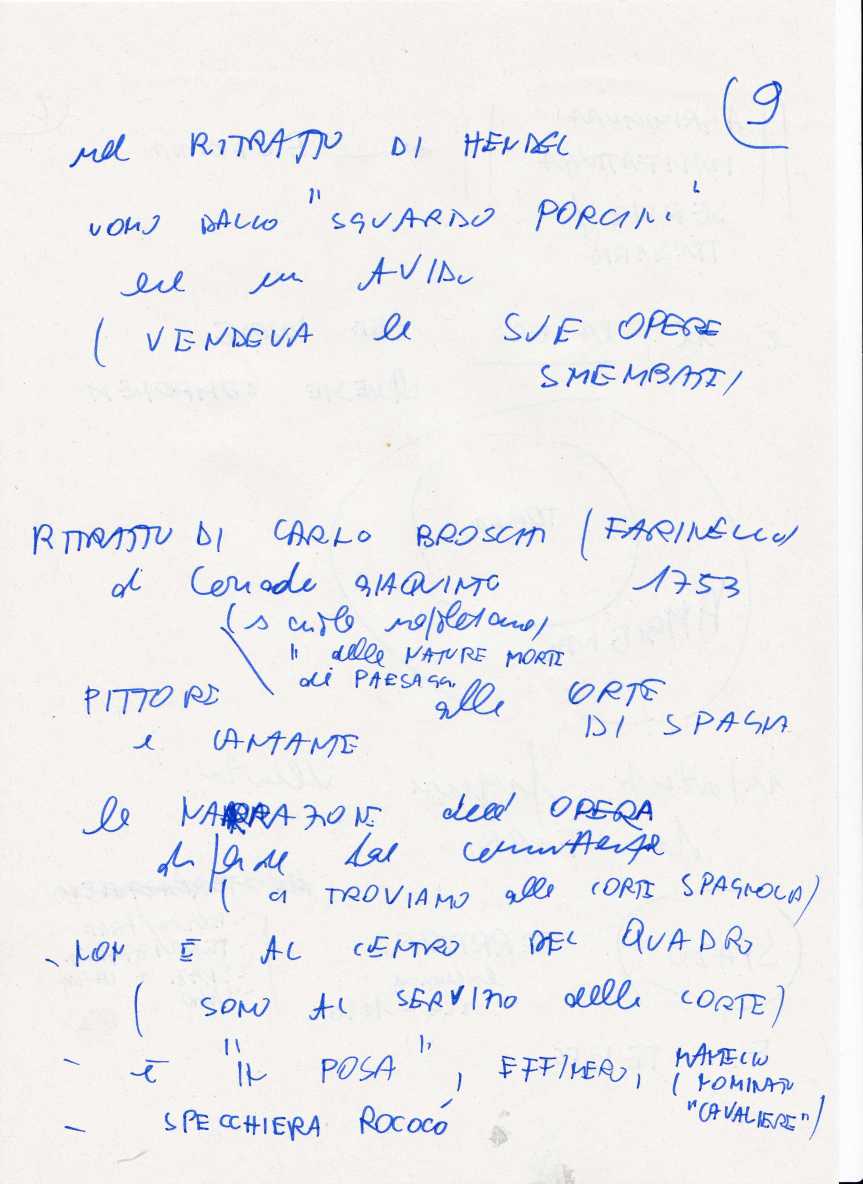 (9
nel RITRATTO DI HENDEL
UOMO DALLO "SGUARDO PORCINI"
ed un AVIDO
( VENDEVA le SUE OPERE
SMEMBATI)
RITRATTO DI CARLO BROSCHI (FARINELLO)
di Corrado GIAQUINTO 1753
(scuola napoletana)
" delle NATURE MORTI
di PAESAGGI
PITTORE alle ORTE
DI SPAGNA
e CANTANTE
la NARRAZIONE dell' OPERA
dipende dal committente
( ci TROVIAMO alle CORTI SPAGNOLA)
- NON E AL CENTRO DEL QUADRO
( SONO AL SERVIZIO della CORTE)
- è "IN POSA", EFFIMERO, MANTELLO
( NOMINATO
"CAVALIERE")
- SPECCHIERA ROCOCÓ